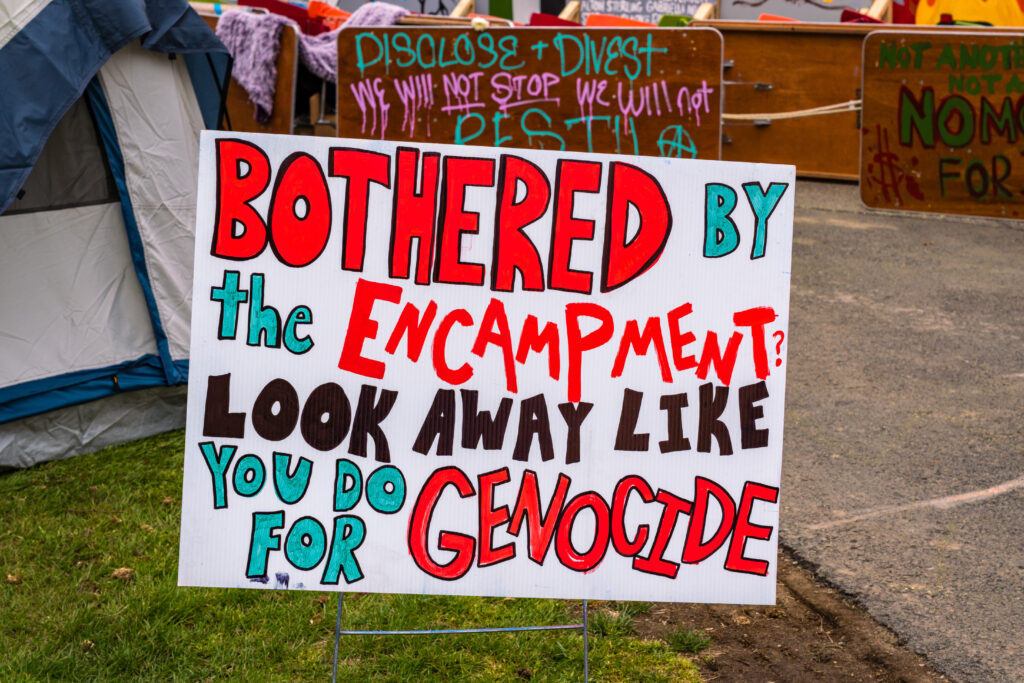 ALTON STERLING GABRIELLA
DISCLOSE + DIVEST
WE WILL NOT STOP WE WILL NOT
REST
NOT ANOTHE
NOT A
NO MO
FOR
BOTHERED BY
the ENCAMPMENT?
LOOK AWAY LIKE
YOU DO GENOCIDE
FOR